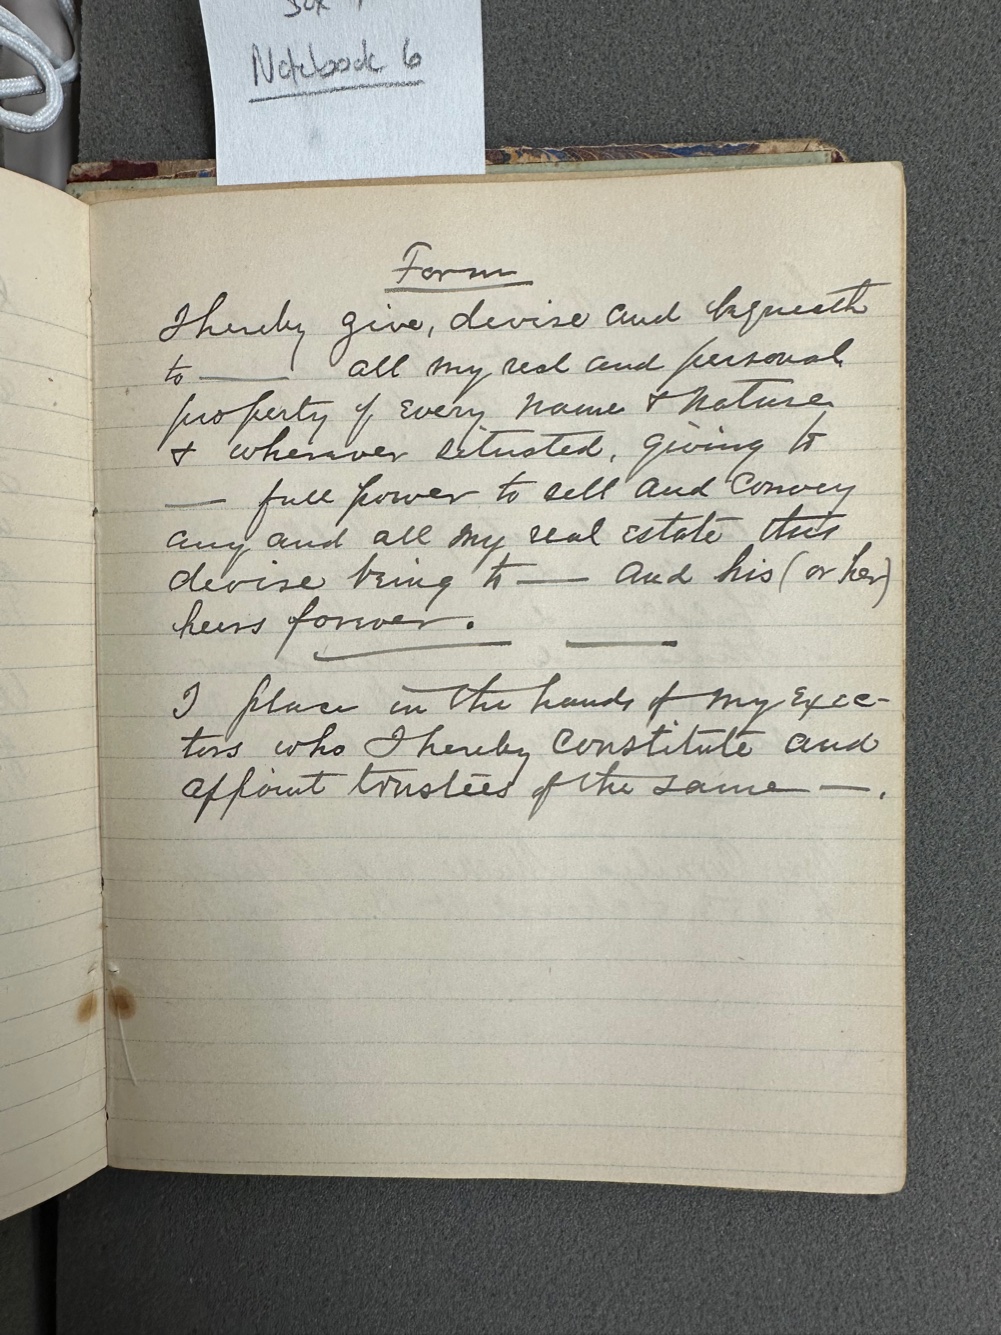 Notebook 6
Form
I hereby give, devise and bequeath
to —— all my real and personal
property of every name & nature
& wherever situated, giving to
— full power to sell and convey
any and all my real estate this
devise being to —— and his (or her)
heirs forever.
I place in the hands of my exec-
tors who I hereby constitute and
appoint trustees of the same —.